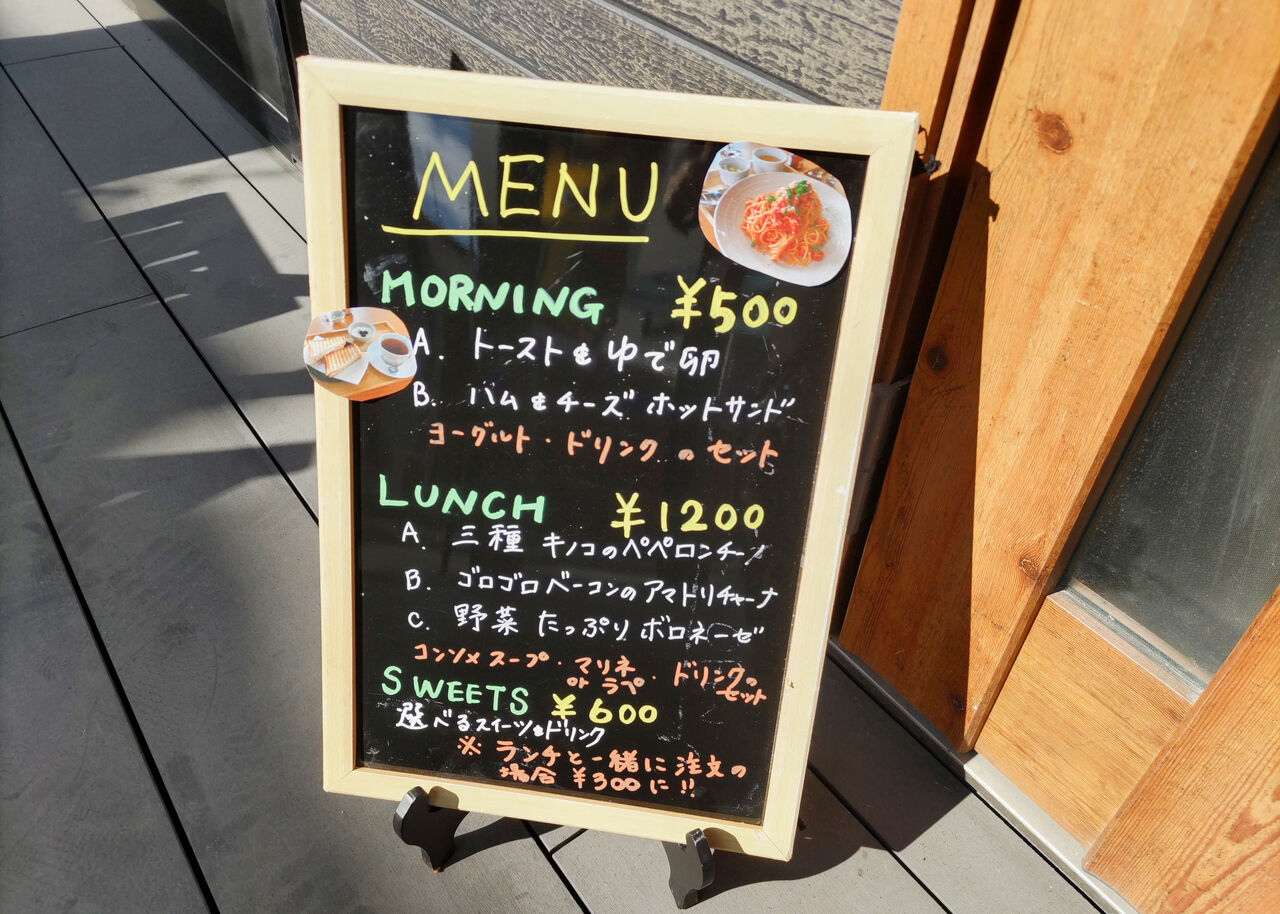 MENU
MORNING ¥500
A. トースト & ゆで卵
B. ハム & チーズ ホットサンド
ヨーグルト・ドリンク のセット
LUNCH ¥1200
A. 三種 キノコのペペロンチーノ
B. ゴロゴロベーコンのアマトリチャーナ
C. 野菜 たっぷり ボロネーゼ
コンソメスープ・マリネ or ラペ・ドリンクのセット
SWEETS ¥600
選べるスイーツ & ドリンク
※ ランチと一緒に注文の
場合 ¥300に!!